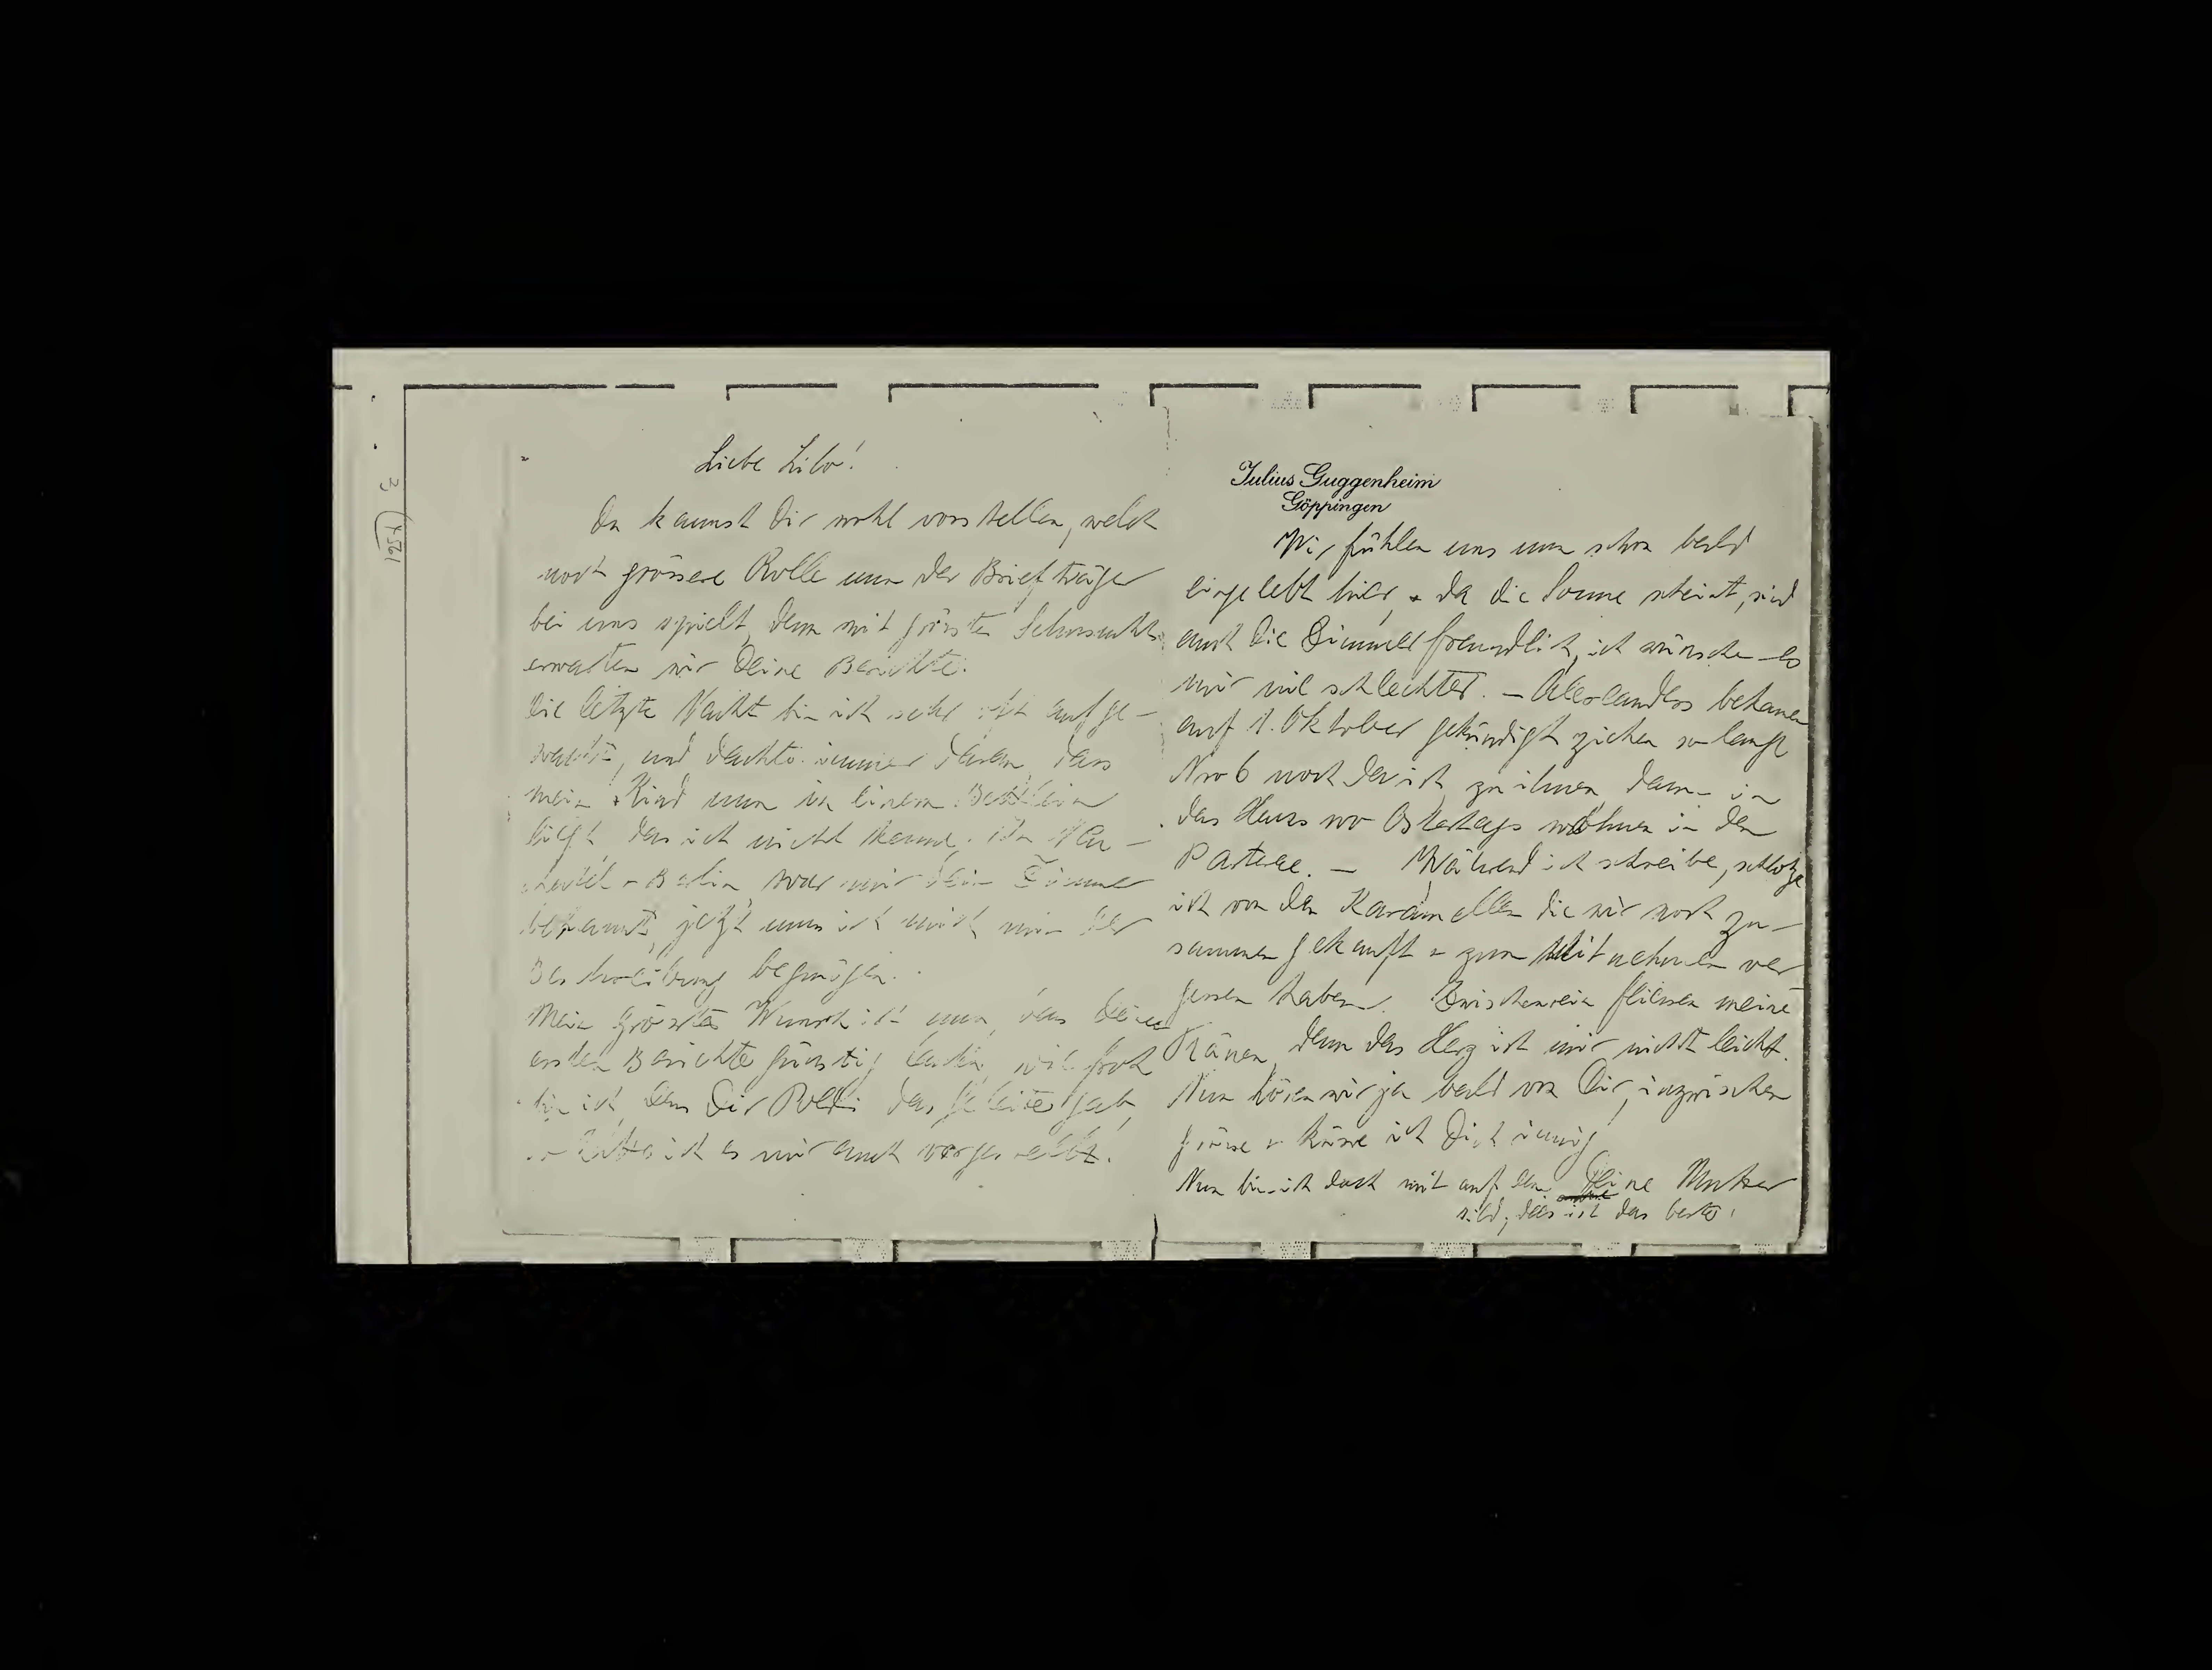 Liebe Lilo!
Du kannst Dir wohl vorstellen, welch
noch grössere Rolle nun der Briefträger
bei uns spielt, denn mit grösster Sehnsucht
erwarten wir Deine Berichte.
Die letzte Nacht bin ich sehr oft aufge-
wacht, und dachte immer daran, dass
mein Kind nun in einem Bettlein
liegt, das ich nicht kenne. In Neu-
chatel u Berlin war mir Dein Zimmer
bekannt, jetzt muss ich mich mit der
Beschreibung begnügen.
Mein grösster Wunsch ist nun, dass Deine
ersten Berichte günstig lauten, wie froh
bin ich, dass Dir Poldi das Geleite gab,
so hatte ich es mir auch vorgestellt.
Julius Guggenheim
Göppingen
Wir fühlen uns nun schon bald
eingelebt hier, & da die Sonne scheint, sind
auch die Zimmer freundlich, ich wünsche es
mir nie schlechter. – bekamen
auf 1. Oktober gekündigt ziehen so lange
Nro 6 noch da ist, zu ihnen, dann in
das Haus wo Ostertags wohnen in den
Parterre. – Während ich schreibe, schlotze
ich von den Karamellen die wir noch zu-
sammen gekauft u zum Mitnehmen ver
gessen haben. Zwischenrein fliessen meine
Tränen, denn das Herz ist mir nicht leicht.
Nun hören wir ja bald von Dir, inzwischen
grüsse u küsse ich Dich innig
Deine Mutter
Nun bin ich doch mit auf dem
Bild, dies ist das beste.